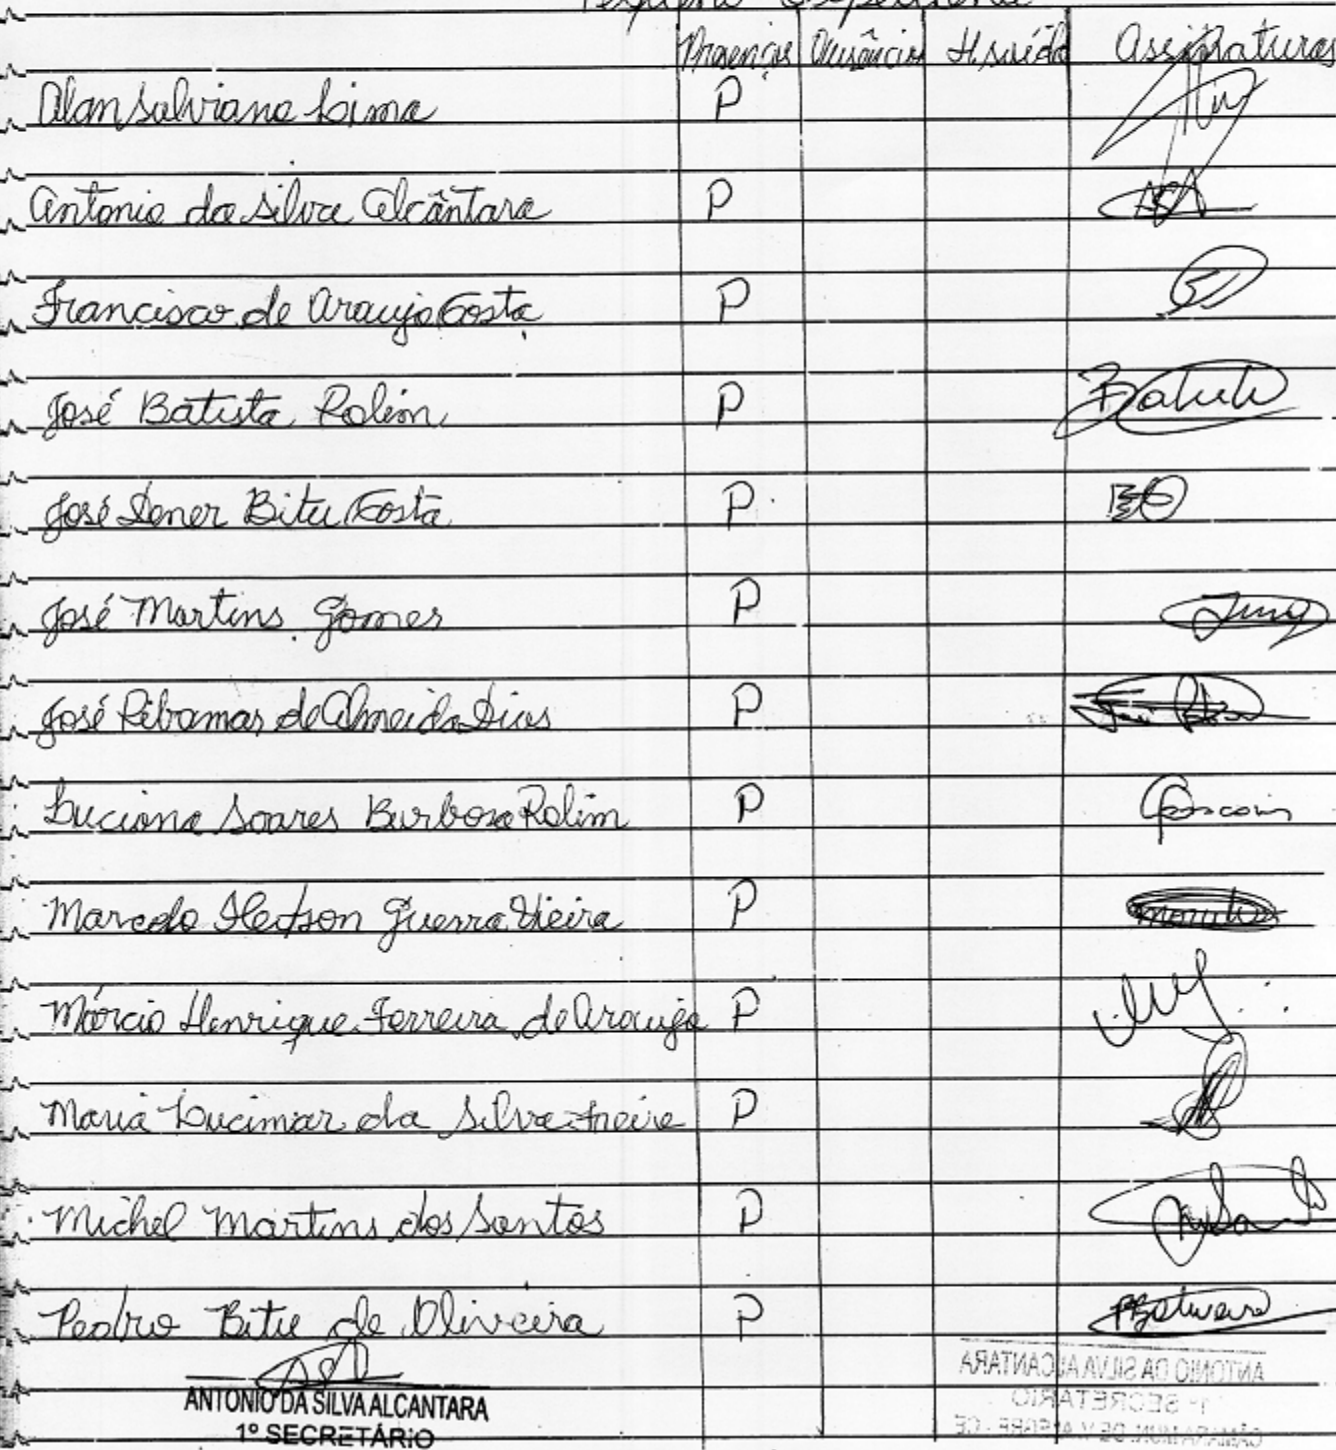 Pequeno Expediente
Presenças Ausências H.saída Assinaturas
Alan Salviano Lima P
Antonio da Silva Alcântara P
Francisco de Araujo Costa P
José Batista Rolim P Batista
José Dener Bitu Costa P
José Martins Gomes P
José Ribamar de Almeida Dias P
Luciana Soares Barbosa Rolim P
Marcelo Hedson Guerra Vieira P
Márcio Henrique Ferreira de Araujo P
Maria Lucimar da Silva Freire P
Michel Martins dos Santos P
Pedro Bitu de Oliveira P
ANTONIO DA SILVA ALCANTARA
1º SECRETÁRIO
ANTONIO DA SILVA ALCANTARA
1º SECRETÁRIO